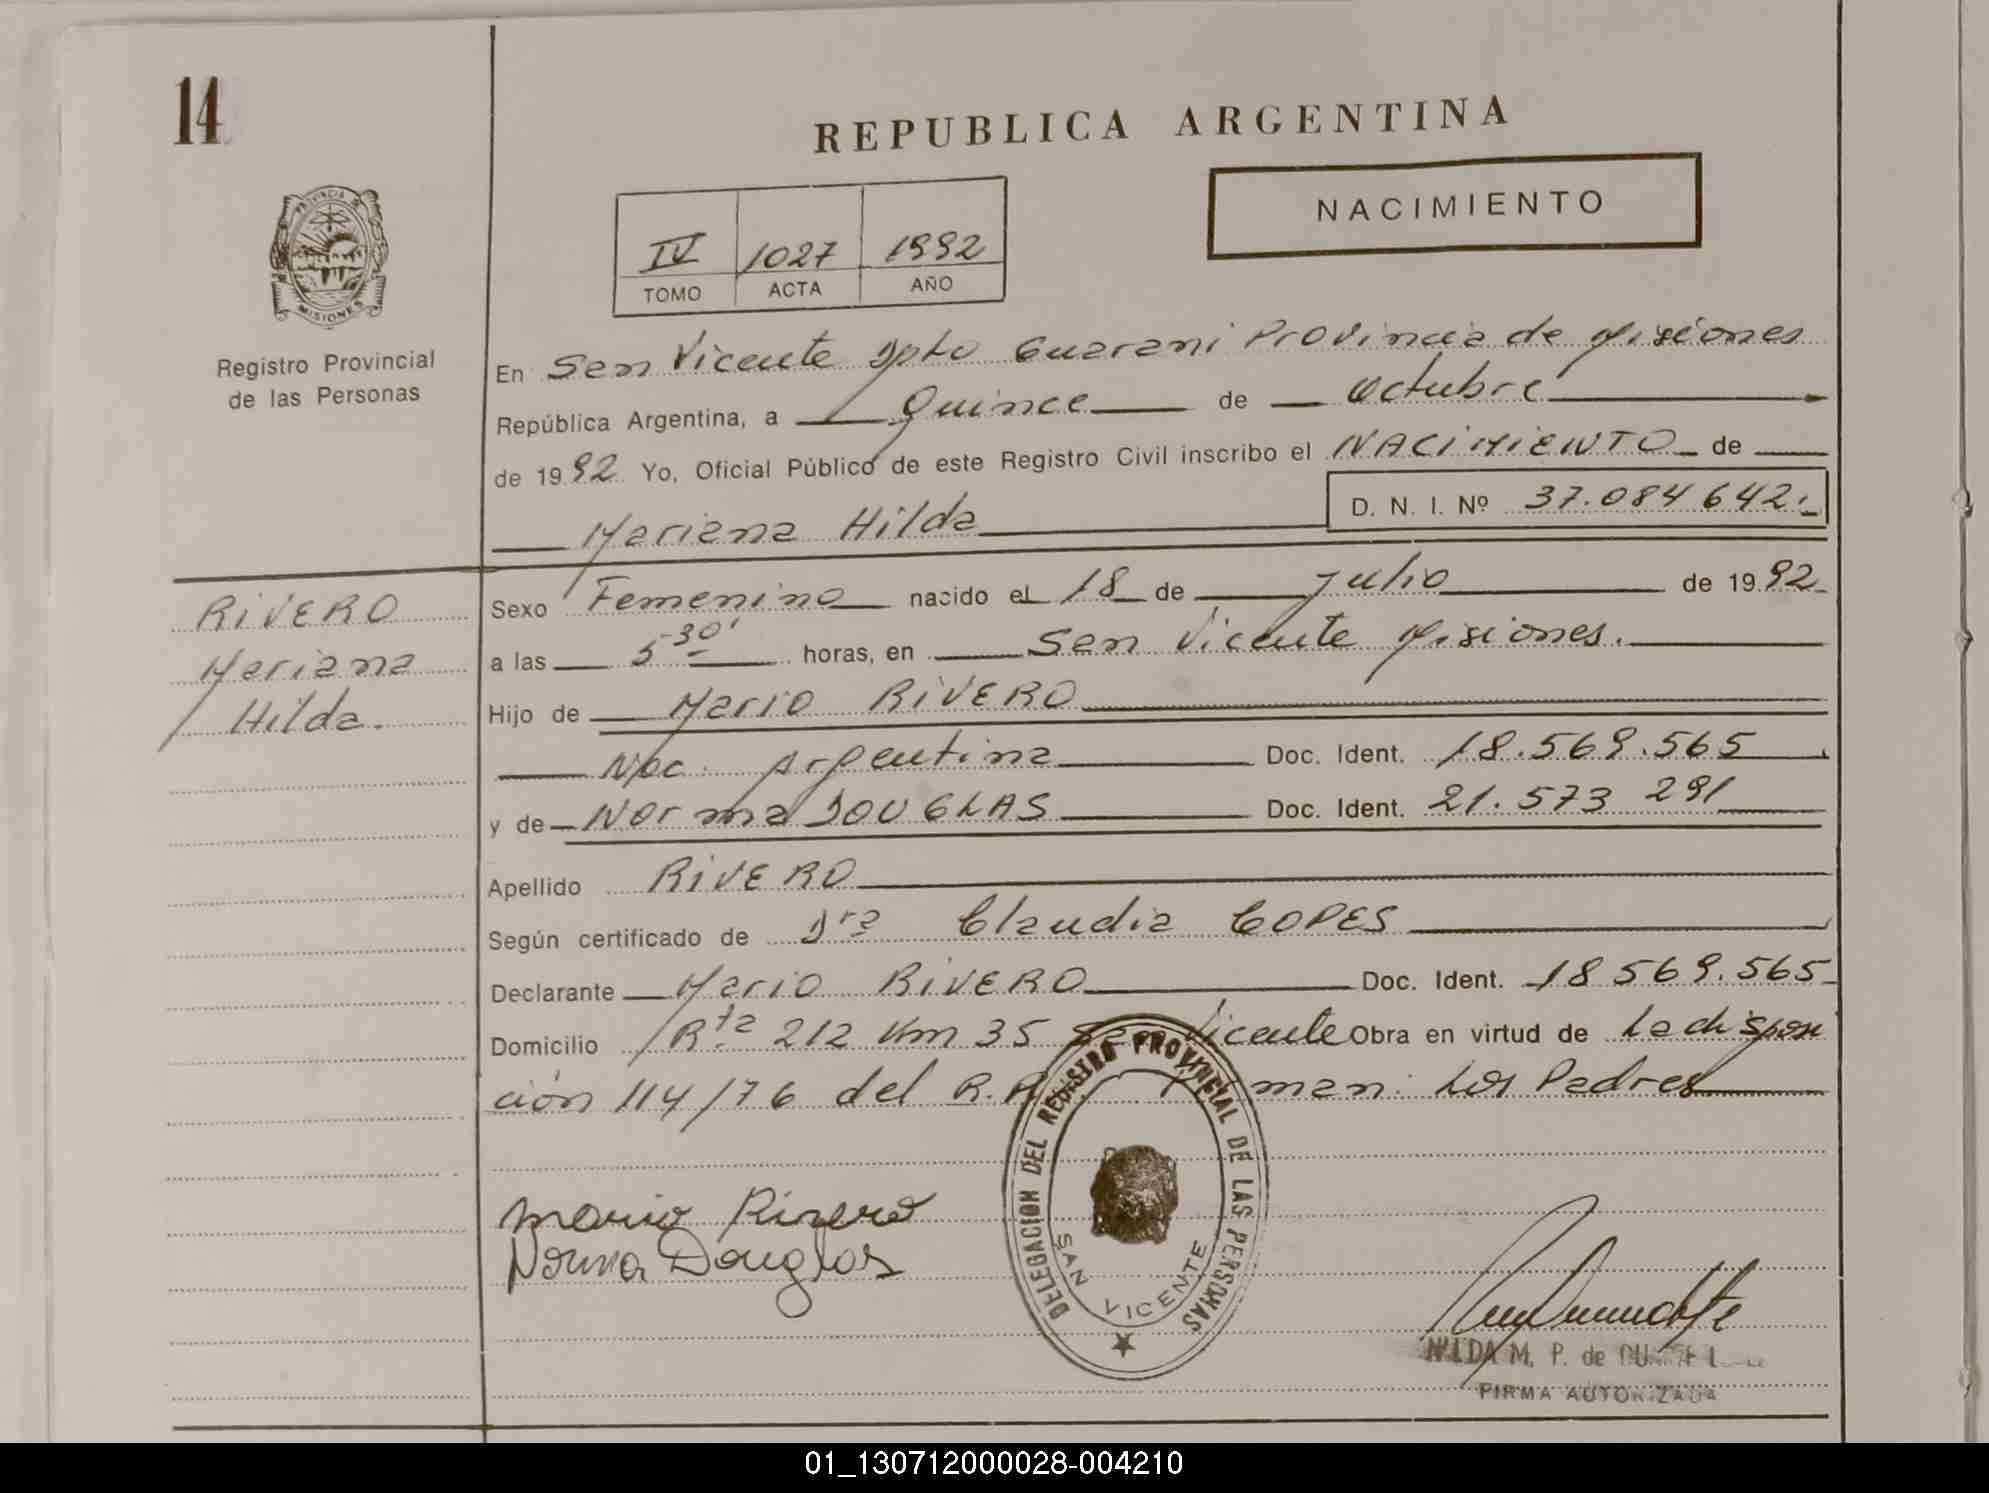 14
REPUBLICA ARGENTINA
NACIMIENTO
PROVINCIA DE
MISIONES
Registro Provincial
de las Personas
IV 1027 1992
TOMO ACTA AÑO
En San Vicente Dpto Guarani Provincia de Misiones
República Argentina, a Quince de Octubre
de 1992 Yo, Oficial Público de este Registro Civil inscribo el NACIMIENTO de
D. N. I. Nº 37.084 642.
Mariana Hilda
RIVERO
Mariana
Hilda.
Sexo Femenino nacido el 18 de Julio de 1992
a las 5 30' horas, en San Vicente Misiones.
Hijo de Mario RIVERO
Nac. Argentina Doc. Ident. 18.569.565
y de Norma DOUGLAS Doc. Ident. 21.573 291
Apellido RIVERO
Según certificado de Dra Claudia COPES
Declarante Mario RIVERO Doc. Ident. 18 569.565
Domicilio Rta 212 Km 35 San Vicente Obra en virtud de La dispos
ción 114/76 del R.P. Firman: Los Padres
Mario Rivero
Norma Douglas
DELEGACION DEL REGISTRO PROVINCIAL DE LAS PERSONAS
SAN VICENTE
NILDA M. P. de
FIRMA AUTORIZADA
01_130712000028-004210